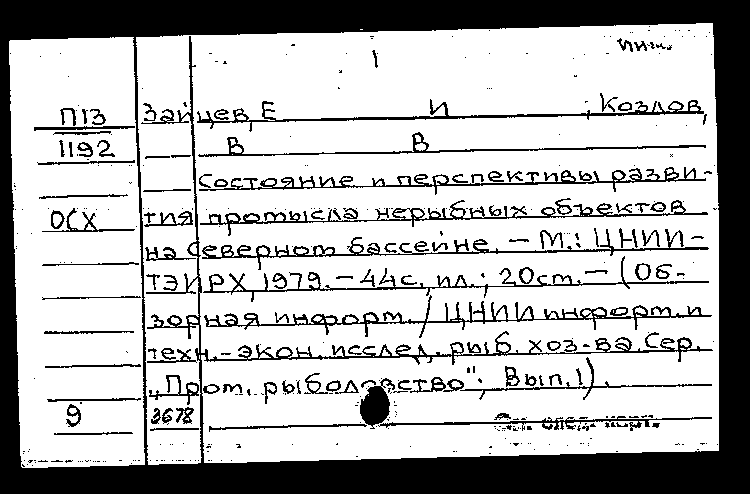 1
П13 Зайцев, Е И ; Козлов,
1192 В В
Состояние и перспективы разви-
ОСХ тия промысла нерыбных объектов
на Северном бассейне. — М.: ЦНИИ-
ТЭИРХ, 1979. — 44с., ил.; 20см. — (Об-
зорная информ. / ЦНИИ информ. и
техн.-экон. исслед. рыб. хоз-ва. Сер.
„Пром. рыболовство"; Вып. 1).
9 3678
См. след. карт.